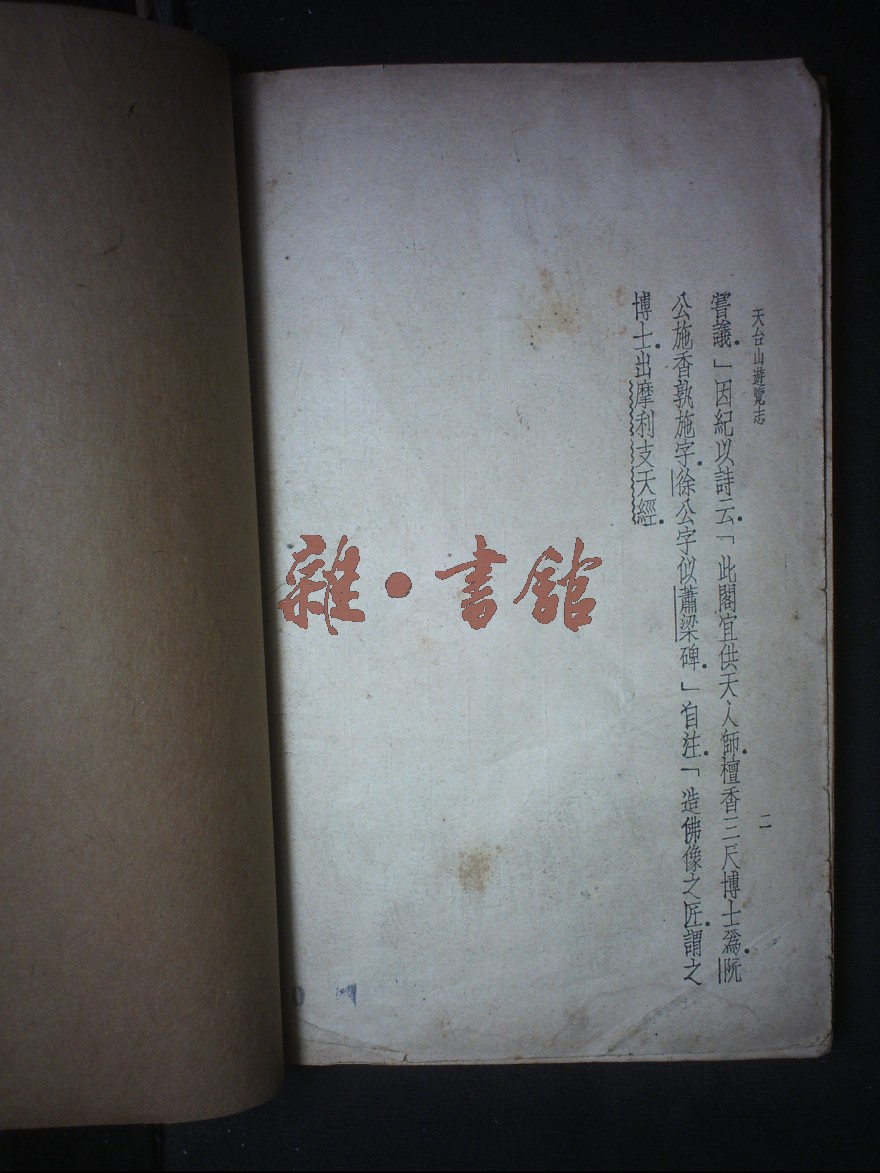 天台山遊覽志
二
嘗議。」因紀以詩云。「此閣宜供天人師。檀香三尺博士爲。阮
公施香孰施字。徐公字似蕭梁碑。」自注。「造佛像之匠。謂之
博士。出摩利支天經。
雜·書館